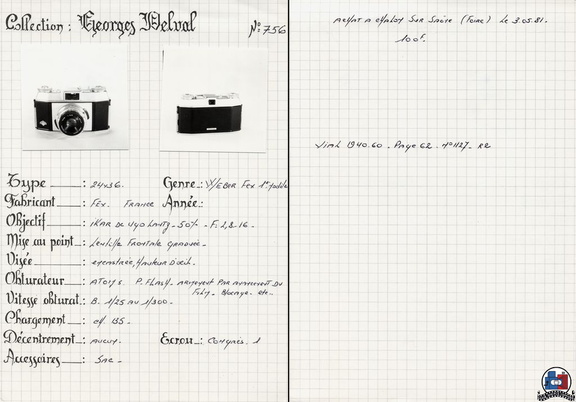 Collection : Georges Delval
N°: 756
Type : 24x36.
Genre : W/EBER Fex 1er modèle
Fabricant : Fex. France
Année :
Objectif : IKAR DE - 50 - F. 2,8-16 -
Mise au point : Lentille Frontale Graduée -
Visée :
Obturateur : ATOS P. FLASH. ARMEMENT PAR AVANCEMENT DU
Film - Blocage. etc..
Vitesse obturat. : B. 1/25 AU 1/300 -
Chargement : 135 -
Décentrement : AUCUN -
Ecrou : Congrès. 1
Accessoires : SAC -
ACHAT A CHALON SUR SAÔNE (Foire) Le 3.05.81.
100f.
Vial 1940.60 - Page 62 - N° 1127 - R2